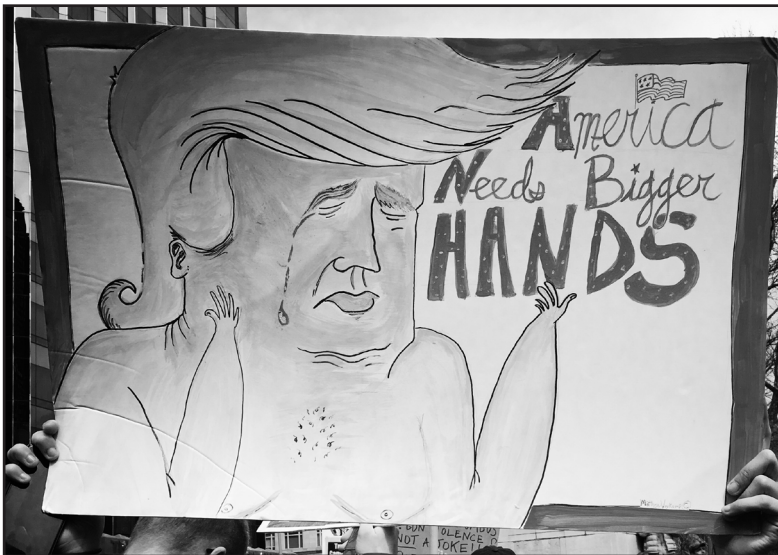 America
Needs Bigger
HANDS
NOT A